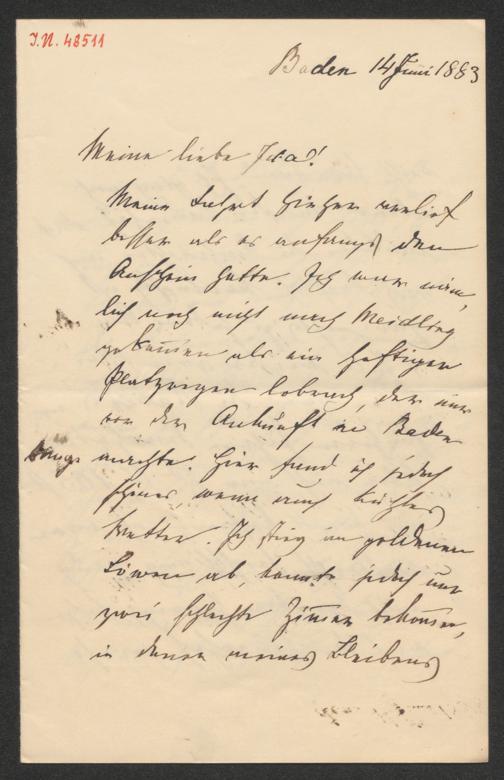 I.N. 48511
Baden 14 Juni 1883
Meine liebe Ida!
Meine Fahrt hieher verlief
besser als es anfangs den
Anschein hatte. Ich war näm-
lich noch nicht nach Meidling
gekommen als ein heftiger
Platzregen losbrach, der mir
vor der Ankunft in Baden
bange machte. Hier fand ich jedoch
schönes, wenn auch kühles
Wetter. Ich stieg im goldenen
Löwen ab, konnte jedoch nur
zwei schlechte Zimmer bekommen,
in denen meines Bleibens